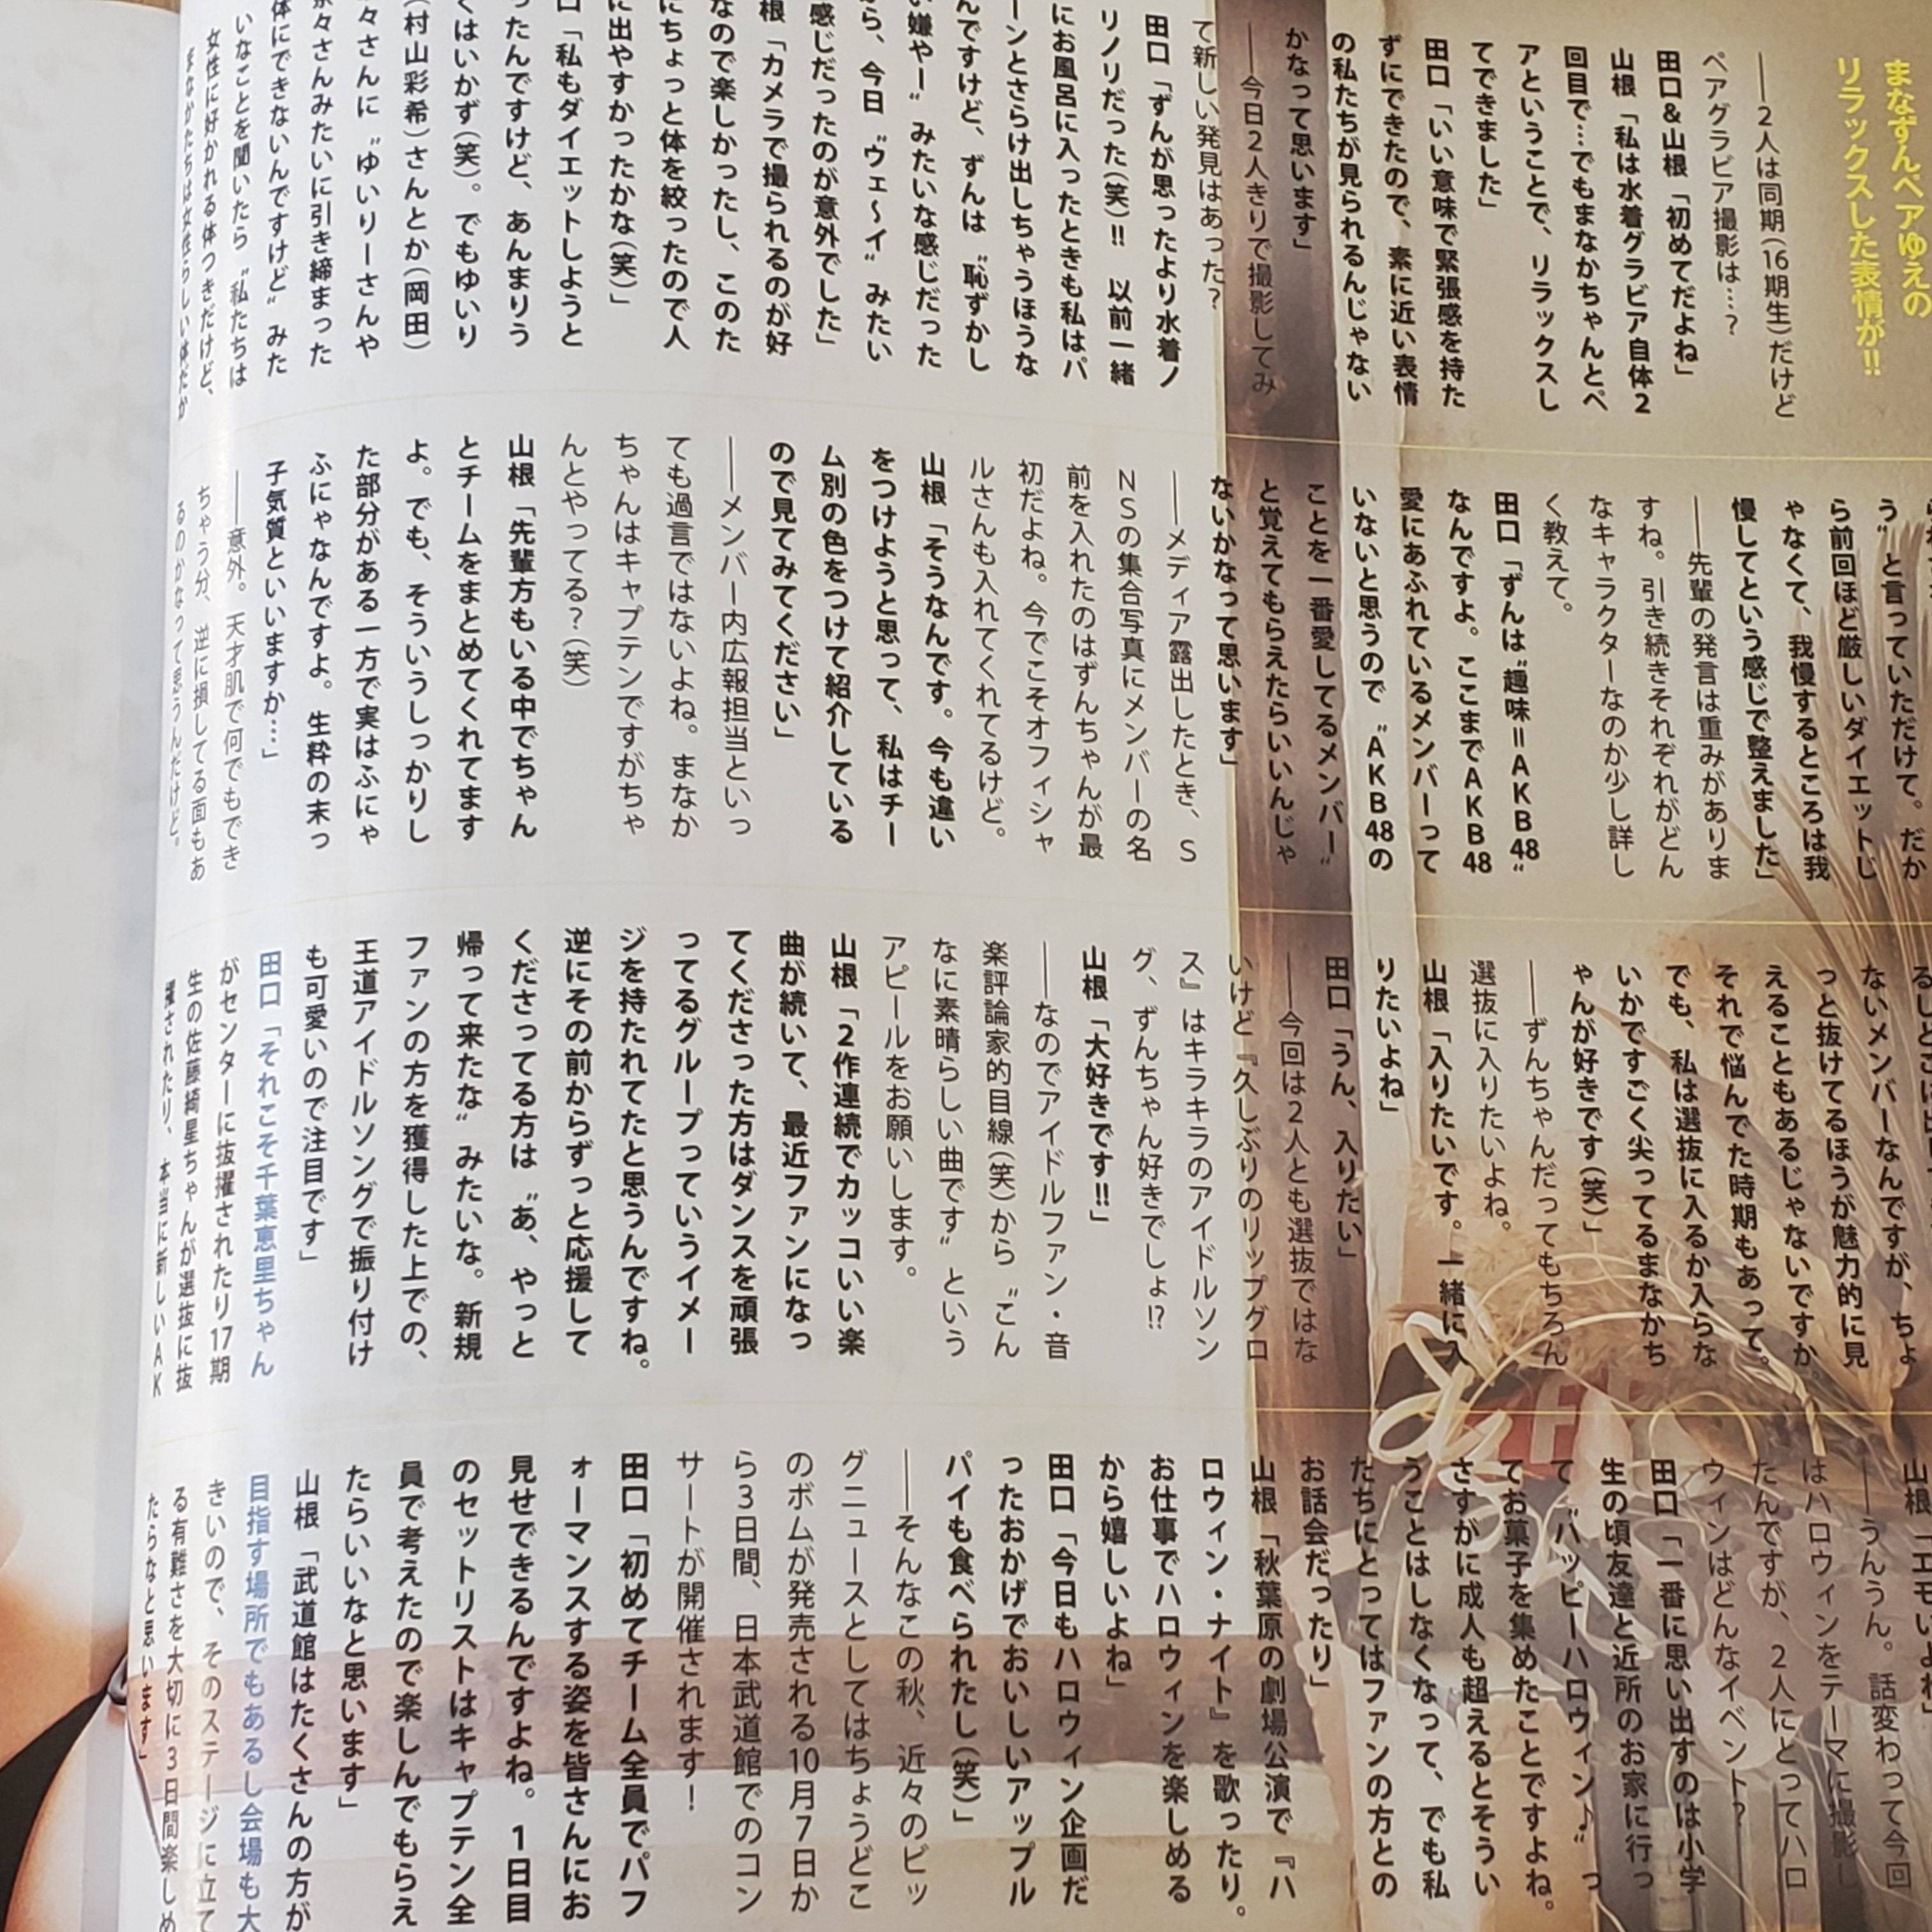 まなずんペアゆえの
リラックスした表情が!!
――2人は同期(16期生)だけど
ペアグラビア撮影は…?
田口&山根「初めてだよね」
山根「私は水着グラビア自体2
回目で…でもまなかちゃんとペ
アということで、リラックスし
てできました」
田口「いい意味で緊張感を持た
ずにできたので、素に近い表情
の私たちが見られるんじゃない
かなって思います」
――今日2人きりで撮影してみ
て新しい発見はあった?
田口「ずんが思ったより水着ノ
リノリだった(笑)!! 以前一緒
にお風呂に入ったときも私はパ
ーンとさらけ出しちゃうほうな
んですけど、ずんは〝恥ずかし
い嫌やー〟みたいな感じだった
から、今日〝ウェ〜イ〟みたい
感じだったのが意外でした」
根「カメラで撮られるのが好
なので楽しかったし、このた
にちょっと体を絞ったので人
に出やすかったかな(笑)」
口「私もダイエットしようと
ったんですけど、あんまりう
くはいかず(笑)。でもゆいり
(村山彩希)さんとか(岡田)
々さんに〝ゆいりーさんや
奈々さんみたいに引き締まった
体にできないんですけど〟みた
いなことを聞いたら〝私たちは
女性に好かれる体つきだけど、
まなかたちは女性らしい体だか
う〟と言っていただけて。だか
ら前回ほど厳しいダイエットじ
ゃなくて、我慢するところは我
慢してという感じで整えました」
――先輩の発言は重みがありま
すね。引き続きそれぞれがどん
なキャラクターなのか少し詳し
く教えて。
田口「ずんは〝趣味=AKB48〟
なんですよ。ここまでAKB48
愛にあふれているメンバーって
いないと思うので〝AKB48の
ことを一番愛してるメンバー〟
と覚えてもらえたらいいんじゃ
ないかなって思います」
――メディア露出したとき、S
NSの集合写真にメンバーの名
前を入れたのはずんちゃんが最
初だよね。今でこそオフィシャ
ルさんも入れてくれてるけど。
山根「そうなんです。今も違い
をつけようと思って、私はチー
ム別の色をつけて紹介している
ので見てみてください」
――メンバー内広報担当といっ
ても過言ではないよね。まなか
ちゃんはキャプテンですがちゃ
んとやってる?(笑)
山根「先輩方もいる中でちゃん
とチームをまとめてくれてます
よ。でも、そういうしっかりし
た部分がある一方で実はふにゃ
ふにゃなんですよ。生粋の末っ
子気質といいますか…」
――意外。天才肌で何でもでき
ちゃう分、逆に損してる面もあ
るのかなって思うんだけど。
ないメンバーなんですが、ちょ
っと抜けてるほうが魅力的に見
えることもあるじゃないですか。
それで悩んでた時期もあって。
でも、私は選抜に入るか入らな
いかですごく尖ってるまなかち
ゃんが好きです(笑)」
――ずんちゃんだってもちろん
選抜に入りたいよね。
山根「入りたいです。一緒に入
りたいよね」
田口「うん、入りたい」
――今回は2人とも選抜ではな
いけど『久しぶりのリップグロ
ス』はキラキラのアイドルソン
グ、ずんちゃん好きでしょ!?
山根「大好きです!!」
――なのでアイドルファン・音
楽評論家的目線(笑)から〝こん
なに素晴らしい曲です〟という
アピールをお願いします。
山根「2作連続でカッコいい楽
曲が続いて、最近ファンになっ
てくださった方はダンスを頑張
ってるグループっていうイメー
ジを持たれてたと思うんですね。
逆にその前からずっと応援して
くださってる方は〝あ、やっと
帰って来たな〟みたいな。新規
ファンの方を獲得した上での、
王道アイドルソングで振り付け
も可愛いので注目です」
田口「それこそ千葉恵里ちゃん
がセンターに抜擢されたり17期
生の佐藤綺星ちゃんが選抜に抜
擢されたり、本当に新しいAK
山根「エモいよね」
――うんうん。話変わって今回
はハロウィンをテーマに撮影し
たんですが、2人にとってハロ
ウィンはどんなイベント?
田口「一番に思い出すのは小学
生の頃友達と近所のお家に行っ
て〝ハッピーハロウィン♪〟っ
てお菓子を集めたことですよね。
さすがに成人も超えるとそうい
うことはしなくなって、でも私
たちにとってはファンの方との
お話会だったり」
山根「秋葉原の劇場公演で『ハ
ロウィン・ナイト』を歌ったり。
お仕事でハロウィンを楽しめる
から嬉しいよね」
田口「今日もハロウィン企画だ
ったおかげでおいしいアップル
パイも食べられたし(笑)」
――そんなこの秋、近々のビッ
グニュースとしてはちょうどこ
のボムが発売される10月7日か
ら3日間、日本武道館でのコン
サートが開催されます!
田口「初めてチーム全員でパフ
ォーマンスする姿を皆さんにお
見せできるんですよね。1日目
のセットリストはキャプテン全
員で考えたので楽しんでもらえ
たらいいなと思います」
山根「武道館はたくさんの方が
目指す場所でもあるし会場も大
きいので、そのステージに立て
る有難さを大切に3日間楽しめ
たらなと思います」